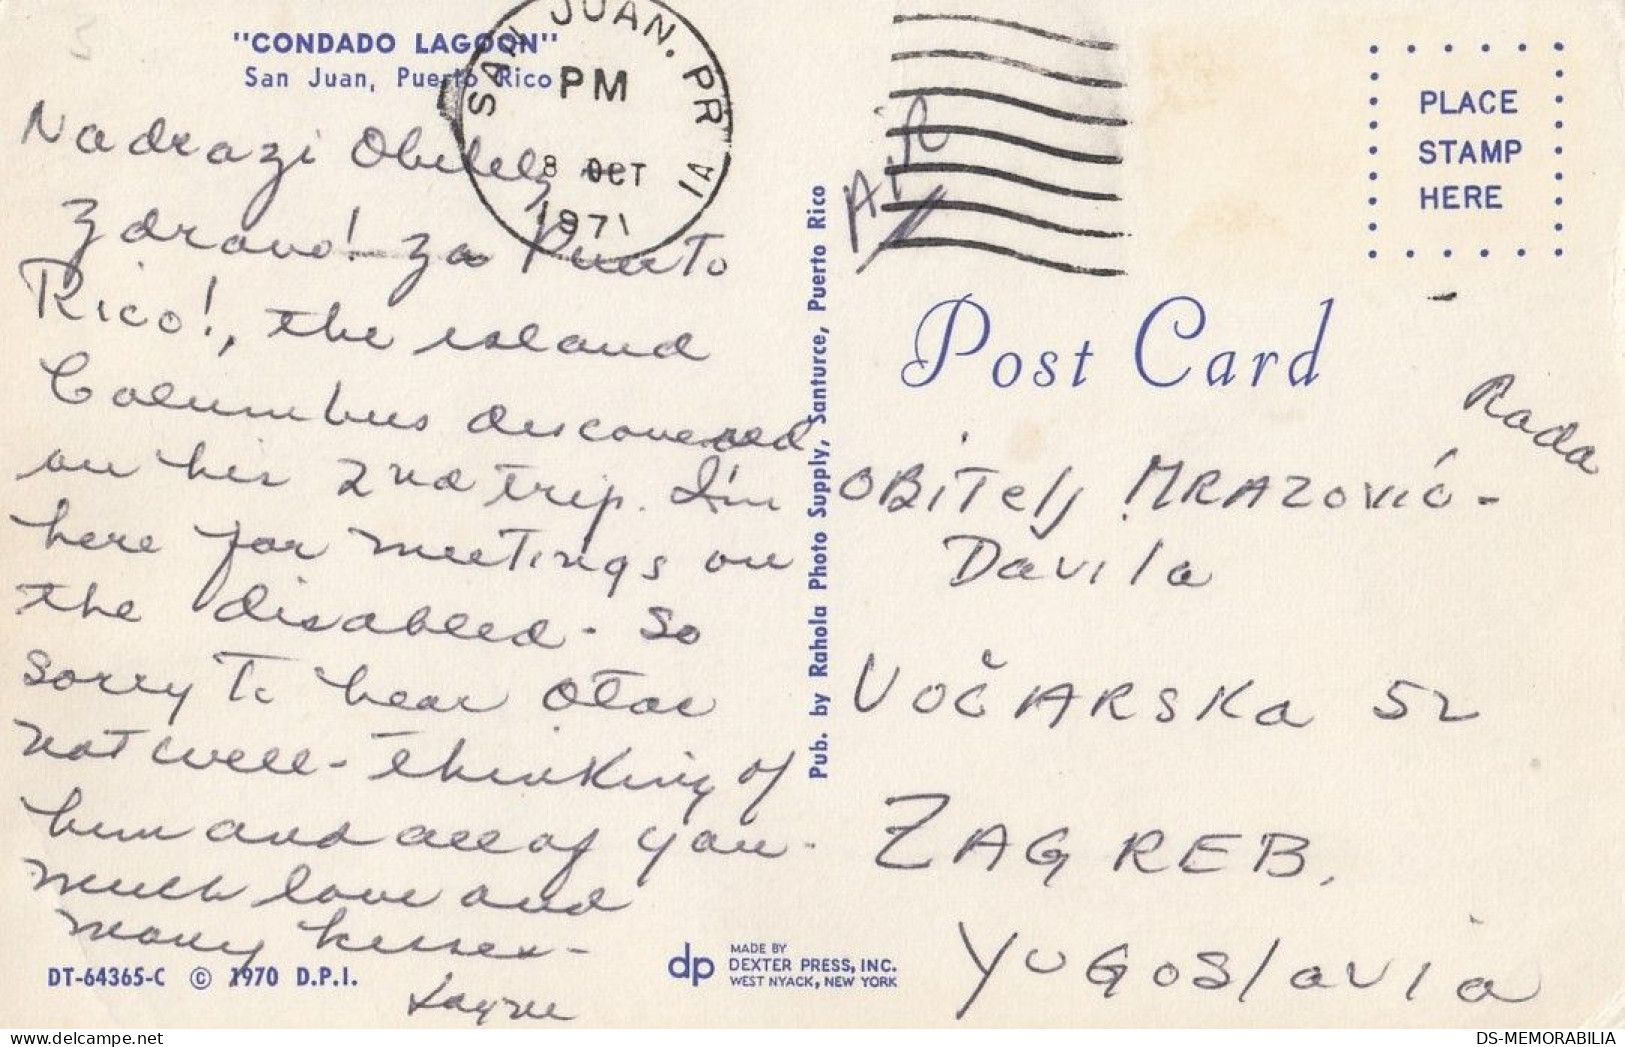 "CONDADO LAGOON"
San Juan, Puerto Rico
Nadrazi Obitelj
Zdravo! za Puerto
Rico!, the island
Columbus discovered
on his 2nd trip. I'm
here for meetings on
the disabled - so
sorry to hear Otac
not well - thinking of
him and all of you -
much love and
many kisses -
DT-64365-C © 1970 D.P.I.
SAN JUAN. PR
PM
8 OCT
1971
1A
Pub. by Rahola Photo Supply, Santurce, Puerto Rico
dp MADE BY
DEXTER PRESS, INC.
WEST NYACK, NEW YORK
AIR
PLACE
STAMP
HERE
Post Card
Rada
OBITelj MRAZOVIĆ -
Davila
VOČARSKA 52
ZAGREB,
YUGOSlaVIa
DS-MEMORABILIA